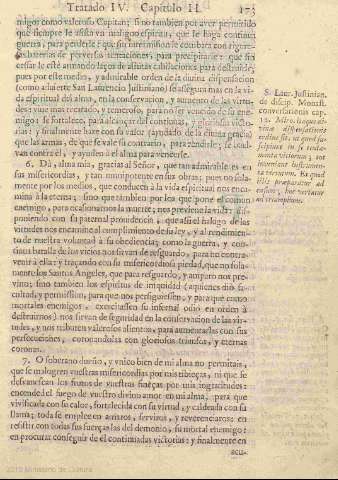 Tratado IV. Capitulo II. 173
migo como valeroso Capitan; si no tambien por aver permitido
que siempre le assista un maligno espiritu, que le haga continua
guerra, para perderle; que sin intermission le combata con
baterias de perversas tentaciones, para precipitarle: que sin
cessar le esté armando lazos de astutas para destruirle;
pues por este medio, y admirable orden de la divina dispensacion
(como advierte San Laurencio Justiniano) se assegura mas en la vida
espiritual del alma, en la conservacion, y aumento de las virtudes:
vive mas recatado, y temeroso, para no ser vencido de su enemigo:
se fortalece, para alcançar del
y finalmente haze con su valor (ayudado de la divina gracia)
que las armas, de que se vale su contrario, para rendirle, se buelvan
contra él, y ayuden à el alma para vencerle.
6. Dà, alma mia, gracias al Señor, que tan admirable es en
sus misericordias, y tan omnipotente en sus obras; pues no solamente
por los medios, que conducen à la vida espiritual nos encamina
à la eterna; sino que tambien por los que pone el comun
enemigo, para ocasionarnos la muerte; nos previene la vida: disponiendo
con su paternal providencia, que assi el halago de las
virtudes nos encamine al cumplimiento de su ley, y al rendimiento
de nuestra voluntad à su obediencia; como la guerra, y continua
batalla de los vicios nos sirvan de resguardo, para no contravenir
à ella: y traçando con su misericordiosa piedad, que no solamente
los Santos Angeles, que para resguardo, y amparo nos previno;
sino tambien los espiritus de iniquidad (à quienes dió facultad,
y permission, para que nos persiguiessen, y para que como
mortales enemigos exercitassen su infernal odio en orden à
destruirnos) nos sirvan de seguridad en la conservacion de las virtudes,
y nos tributen valerosos alientos, para aumentarlas con sus
persecuciones, coronandolas con gloriosos triunfos, y eternas
coronas.
7. O soberano dueño, y unico bien de mi alma no permitais,
que se malogren vuestras misericordias por mis tibieças, ni que se
desvanescan los frutos de vuestras fineças por mis ingratitudes:
encended el fuego de vuestro divino amor en mi alma, para que
vivificada con su calor, fortalecida con su virtud, y caldeada con su
llama; toda se emplee en amaros, serviros, y reverenciaros: en
resistir con todas sus fuerças las del demonio, su mortal enemigo:
en procurar conseguir de el continuadas victorias; y finalmente en
S. Laur. Justinian.
de discip. Monast.
conversationis cap.
Miro itaque divinæ
dispensationis
ordine fit, ut quot
in se
tentamenta virorum, tot
inveniant incrementa
virtutum. Ex quo
illis præparatur ad
casum, hoc vertatur
ad triumphum.
2010 Ministerio de Cultura